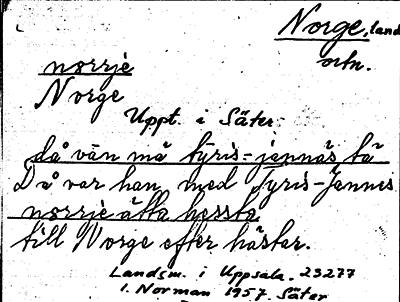 Norge, land
ortn.
norrje
Norge
Uppt. i Säter:
då van mä tyris-jannäs, tä
Då var han med Tyris-Jannes
norrje ätta hessta
till Norge efter hästar.
Landsm. i Uppsala. 23277
I. Norman 1957. Säter